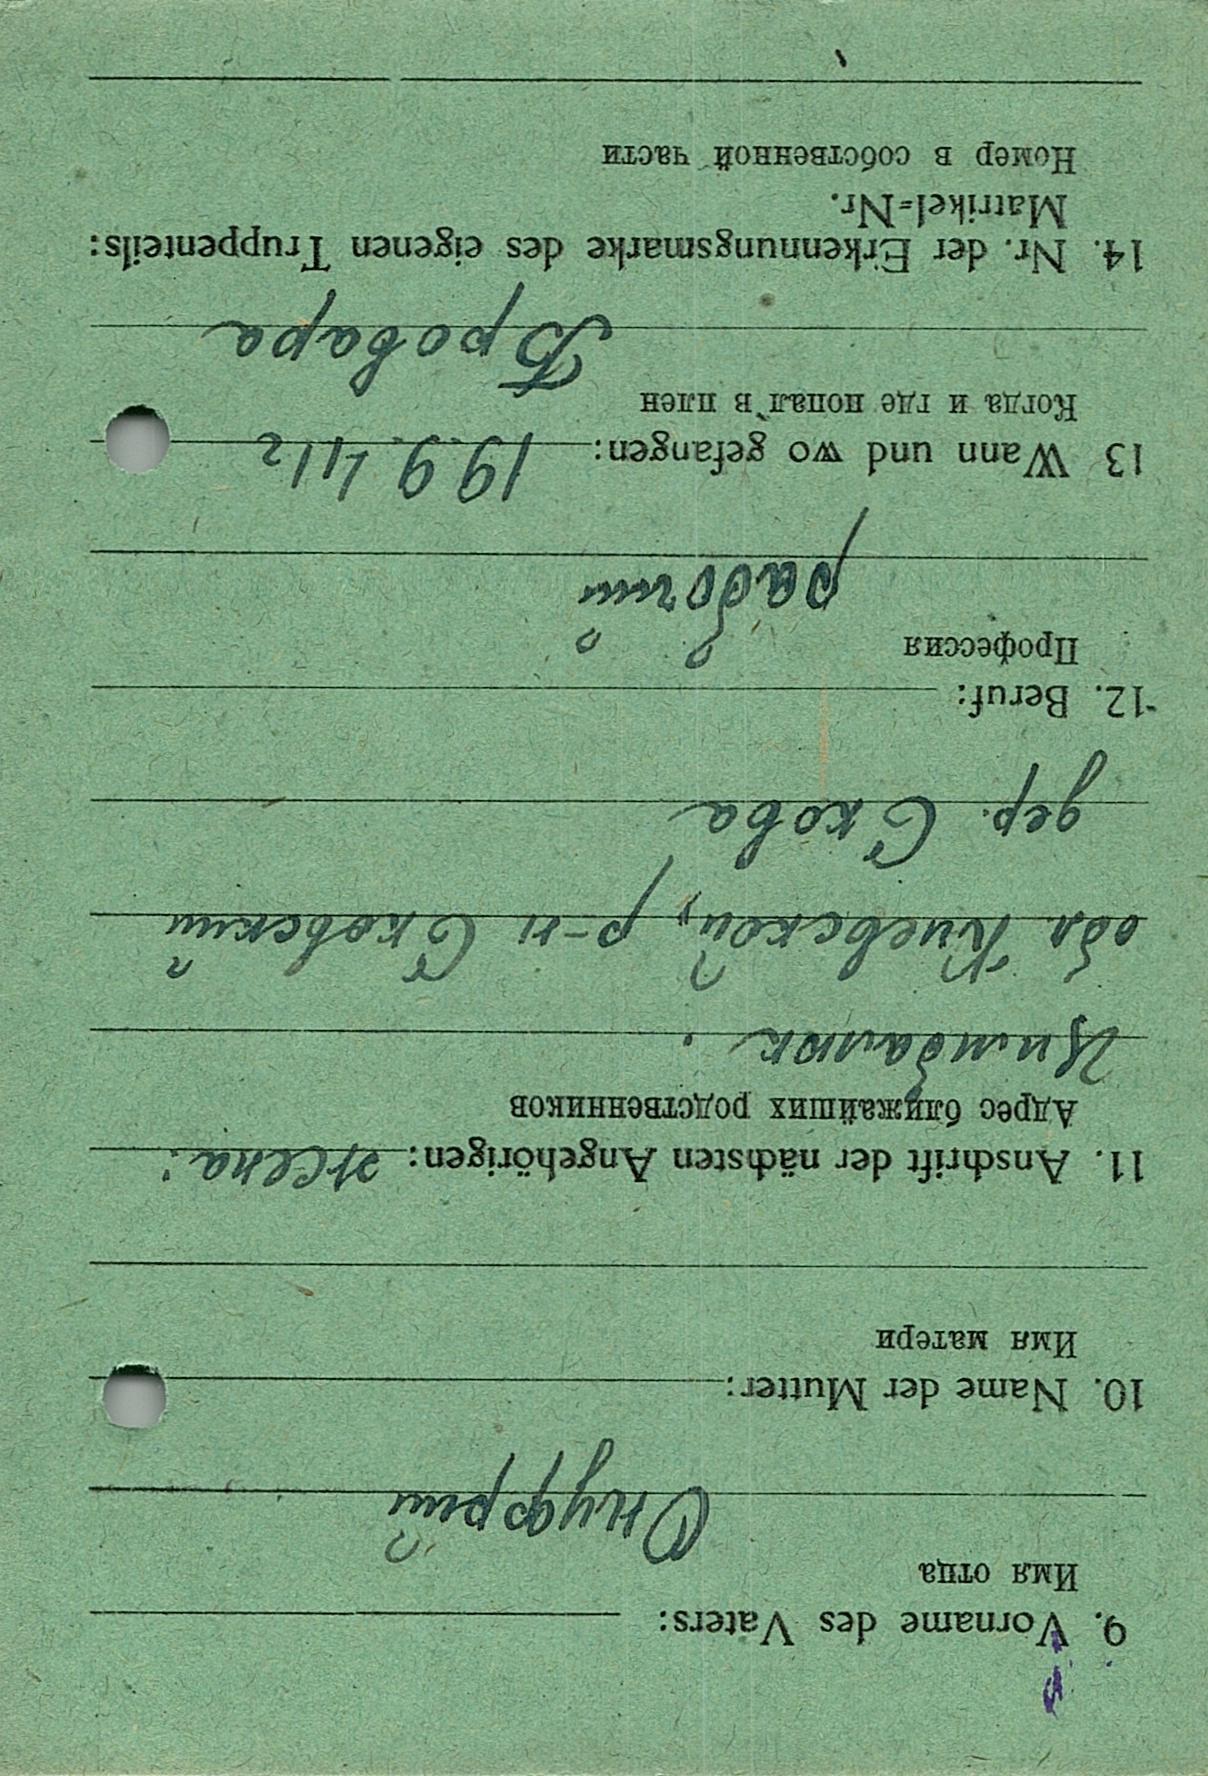 9. Vorname des Vaters:
Имя отца
Онуфрий
10. Name der Mutter:
Имя матери
11. Anschrift der nächsten Angehörigen: жена:
Адрес ближайших родственников
Цимбалюк.
обл. Киевской, р-н Сковский
дер. Сква
12. Beruf:
Профессия
рабочий
13 Wann und wo gefangen: 19.9.41 г
Когда и где попал в плен
Бровара
14. Nr. der Erkennungsmarke des eigenen Truppenteils:
Matrikel=Nr.
Номер в собственной части